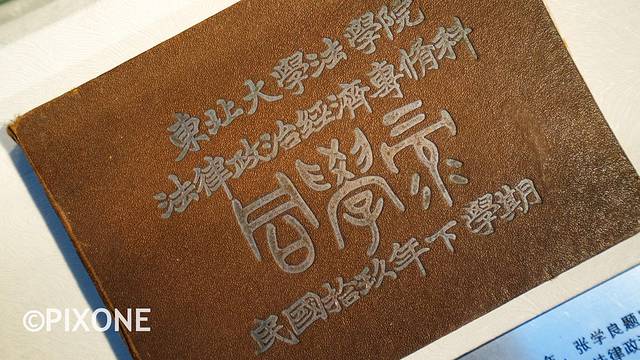 東北大學法學院
法律政治經濟專脩科
同學录
民國拾玖年下學期
张学良題
律政
©PIXONE